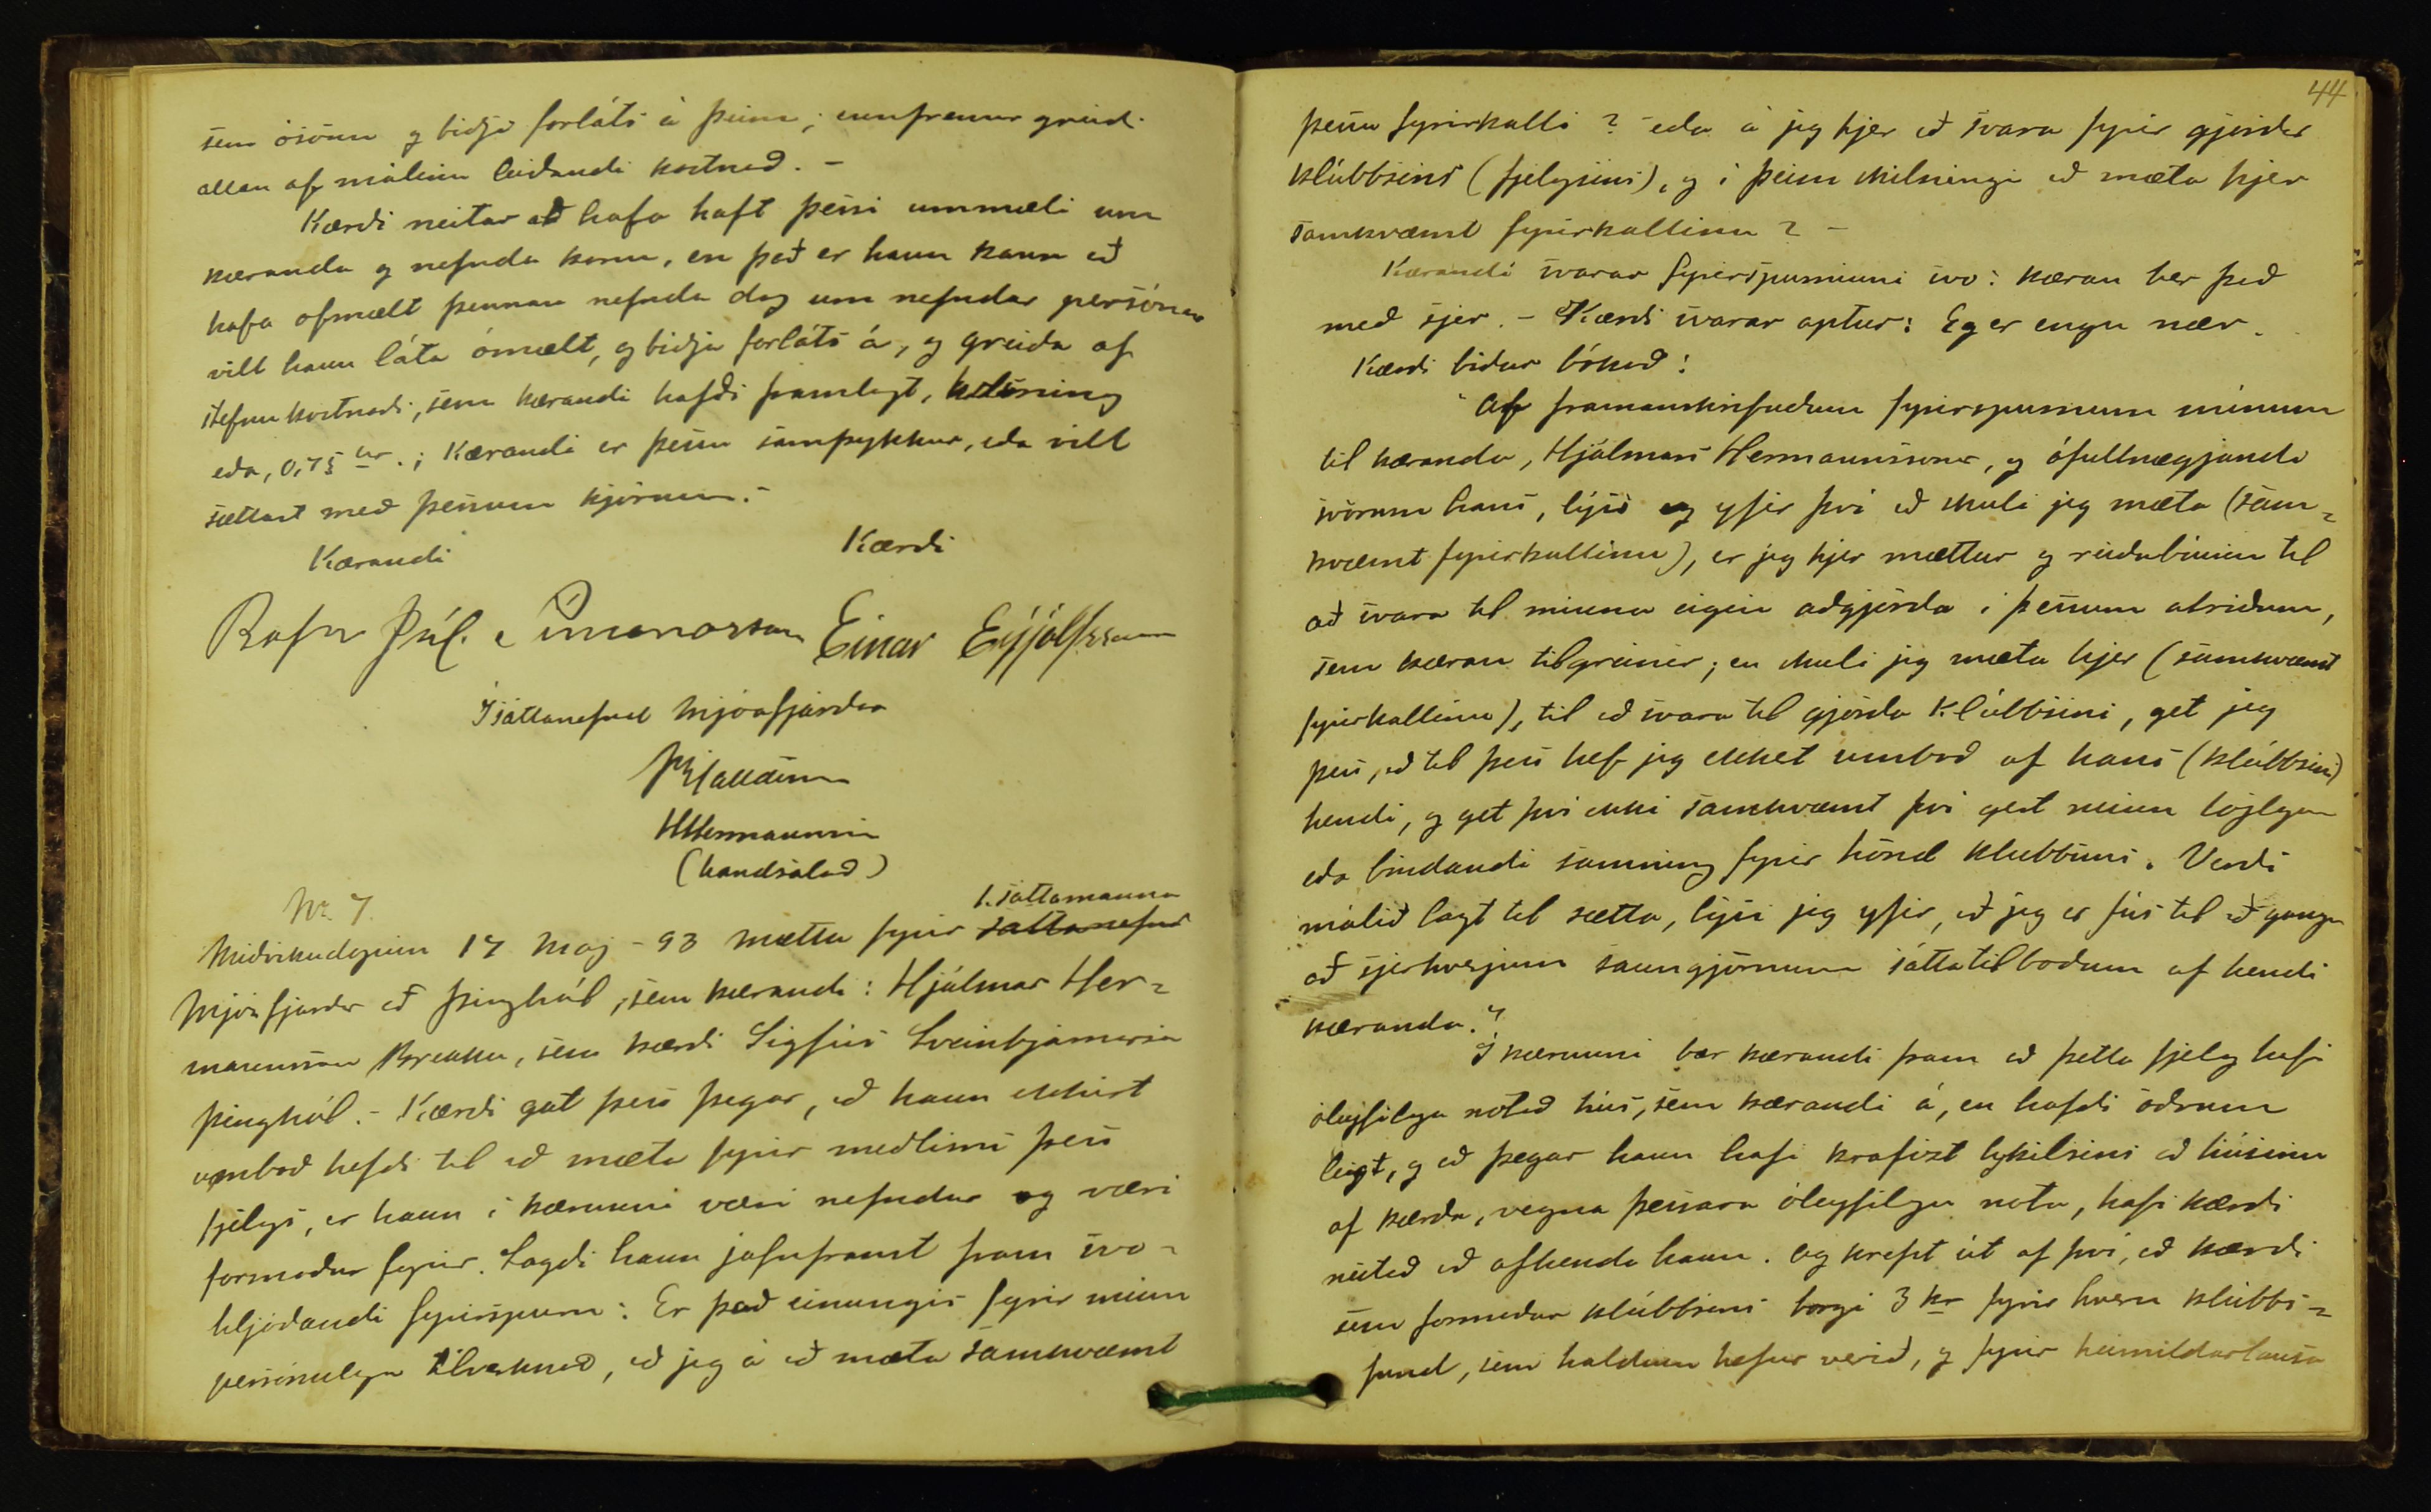 sem ósönn og biðji forláts á þeim; ennfremur greiði
allan af málinu leiðandi kostnað. -
Kærði neitar að hafa haft þessi ummæli um
kæranda og nefnda konu, en það er hann kann að
hafa ofmælt þennan nefnda dag um nefndar persónur
vill hann láta ómælt, og biðja forláts á, og greiða af
stefnukostnaði, sem kærandi hafði framlagt,
eða, 0,75 ur.; Kærandi er þessu samþykkur, eða vill
sættast með þessum kjörum.-
Kærandi Kærði
Rafn Júl. Símonarson Einar Eyjólfsson
Í sáttanefnd Mjóafjarðar
HHermannsson
(handsalað)
Nr. 7.
1. sáttamanna
Miðvikudaginn 17 Maj - 93 mættu fyrir sáttanefnd
Mjóafjarðar að Þinghól, sem kærandi: Hjálmar Her-
mannsson Brekku, sem kærði Sigfús Sveinbjarnarson
Þinghól. - Kærði gat þess þegar, að hann ekkert
umboð hefði til að mæta fyrir meðlimi þess
fjelags, er hann í kærunni væri nefndur og væri
formaður fyrir. Lagði hann jafnframt fram svo-
hljóðandi fyrirspurn: Er það einungis fyrir minn
persónulega tilverknað, að jeg á að mæta samkvæmt
44
þessu fyrirkalli? eða á jeg hjer að svara fyrir gjörðir
klúbbsins (fjelagsins), og í þeim skilningi að mæta hjer
samkvæmt fyrirkallinu? -
Kærandi svarar fyrirspurninni svo: kæran ber það
með sjer. - Kærði svarar aptur: Eg er engu nær.
Kærði biður bókað:
"Af framanskrifuðum fyrirspurnum mínum
til kæranda, Hjálmars Hermannssonar, og ófullnægjandi
svörum hans, lýsi eg yfir því að skuli jeg mæta (sam-
kvæmt fyrirkallinu), er jeg hjer mættur og reiðubúinn til
að svara til minna eigin aðgjörða í þessum atriðum,
sem kæran tilgreinir; en skuli jeg mæta hjer (samkvæmt
fyrirkallinu), til að svara til gjörða Klúbbsins, get jeg
þess, að til þess hef jeg ekket umboð af hans (klúbbsins)
hendi, og get því ekki samkvæmt því gert neinn löglegan
eða bindandi samning fyrir hönd klubbsins. Verði
málið lagt til sætta, lýsi jeg yfir, að jeg er fús til að ganga
að sjerhverjum sanngjörnum sáttatilboðum af hendi
kæranda."
Í kærunni bar kærandi fram að þetta fjelag hafi
óleyfilega notað hús, sem kærandi á, en hafði öðrum
leigt, og að þegar hann hafi krafizt lykilsins að húsinu
af kærða, vegna þessara óleyfilegu nota, hafi kærði
neitað að afhenda hann. Og krefst út af því, að kærði
sem formaður klúbbsins borgi 3 kr fyrir hvern klúbbs-
fund, sem haldinn hefur verið, og fyrir heimildarlausa